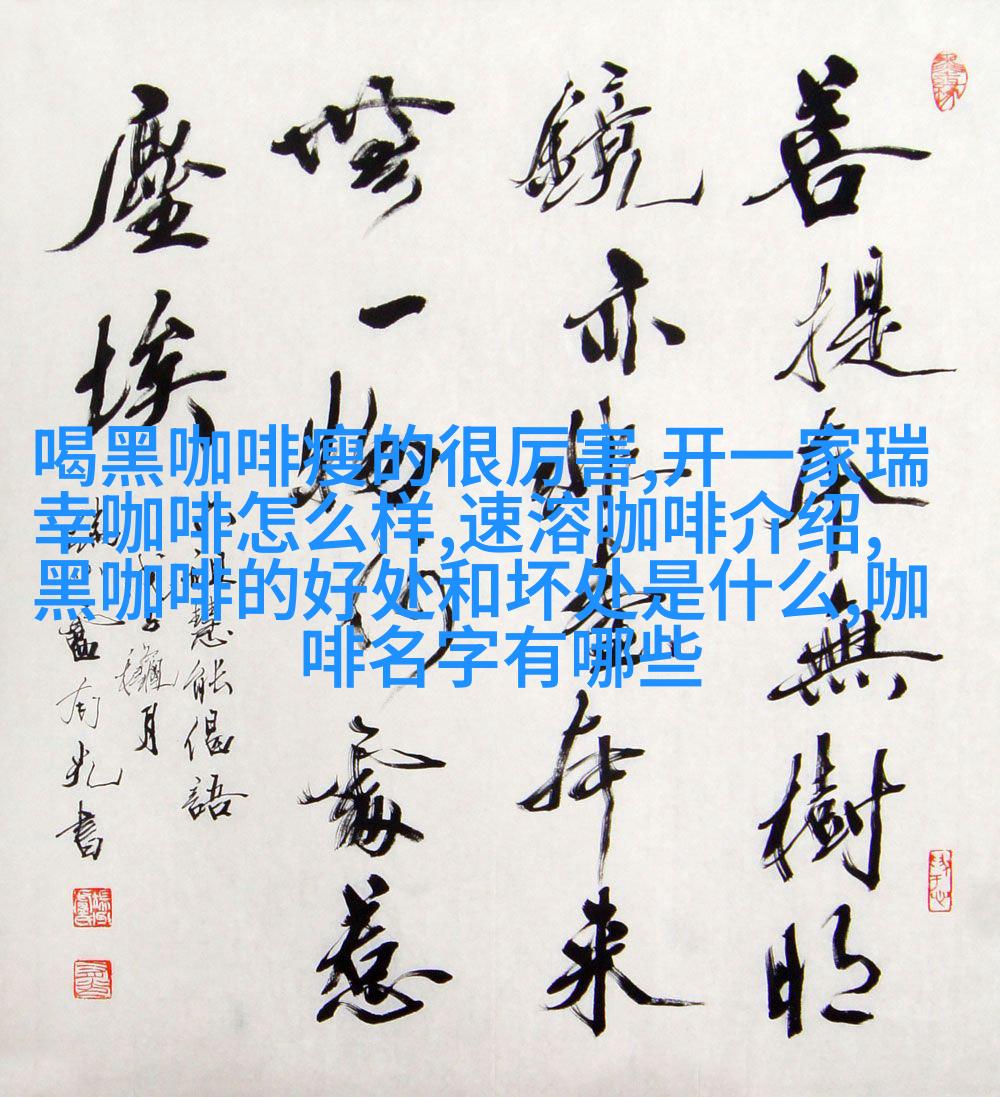 喝黑咖啡瘦的很厉害,开一家瑞
幸咖啡怎么样,速溶咖啡介绍,
黑咖啡的好处和坏处是什么,咖
啡名字有哪些
菩提本無樹明
鏡亦非臺本来
無一物何處惹
塵埃
慧能偈語
月
有光書